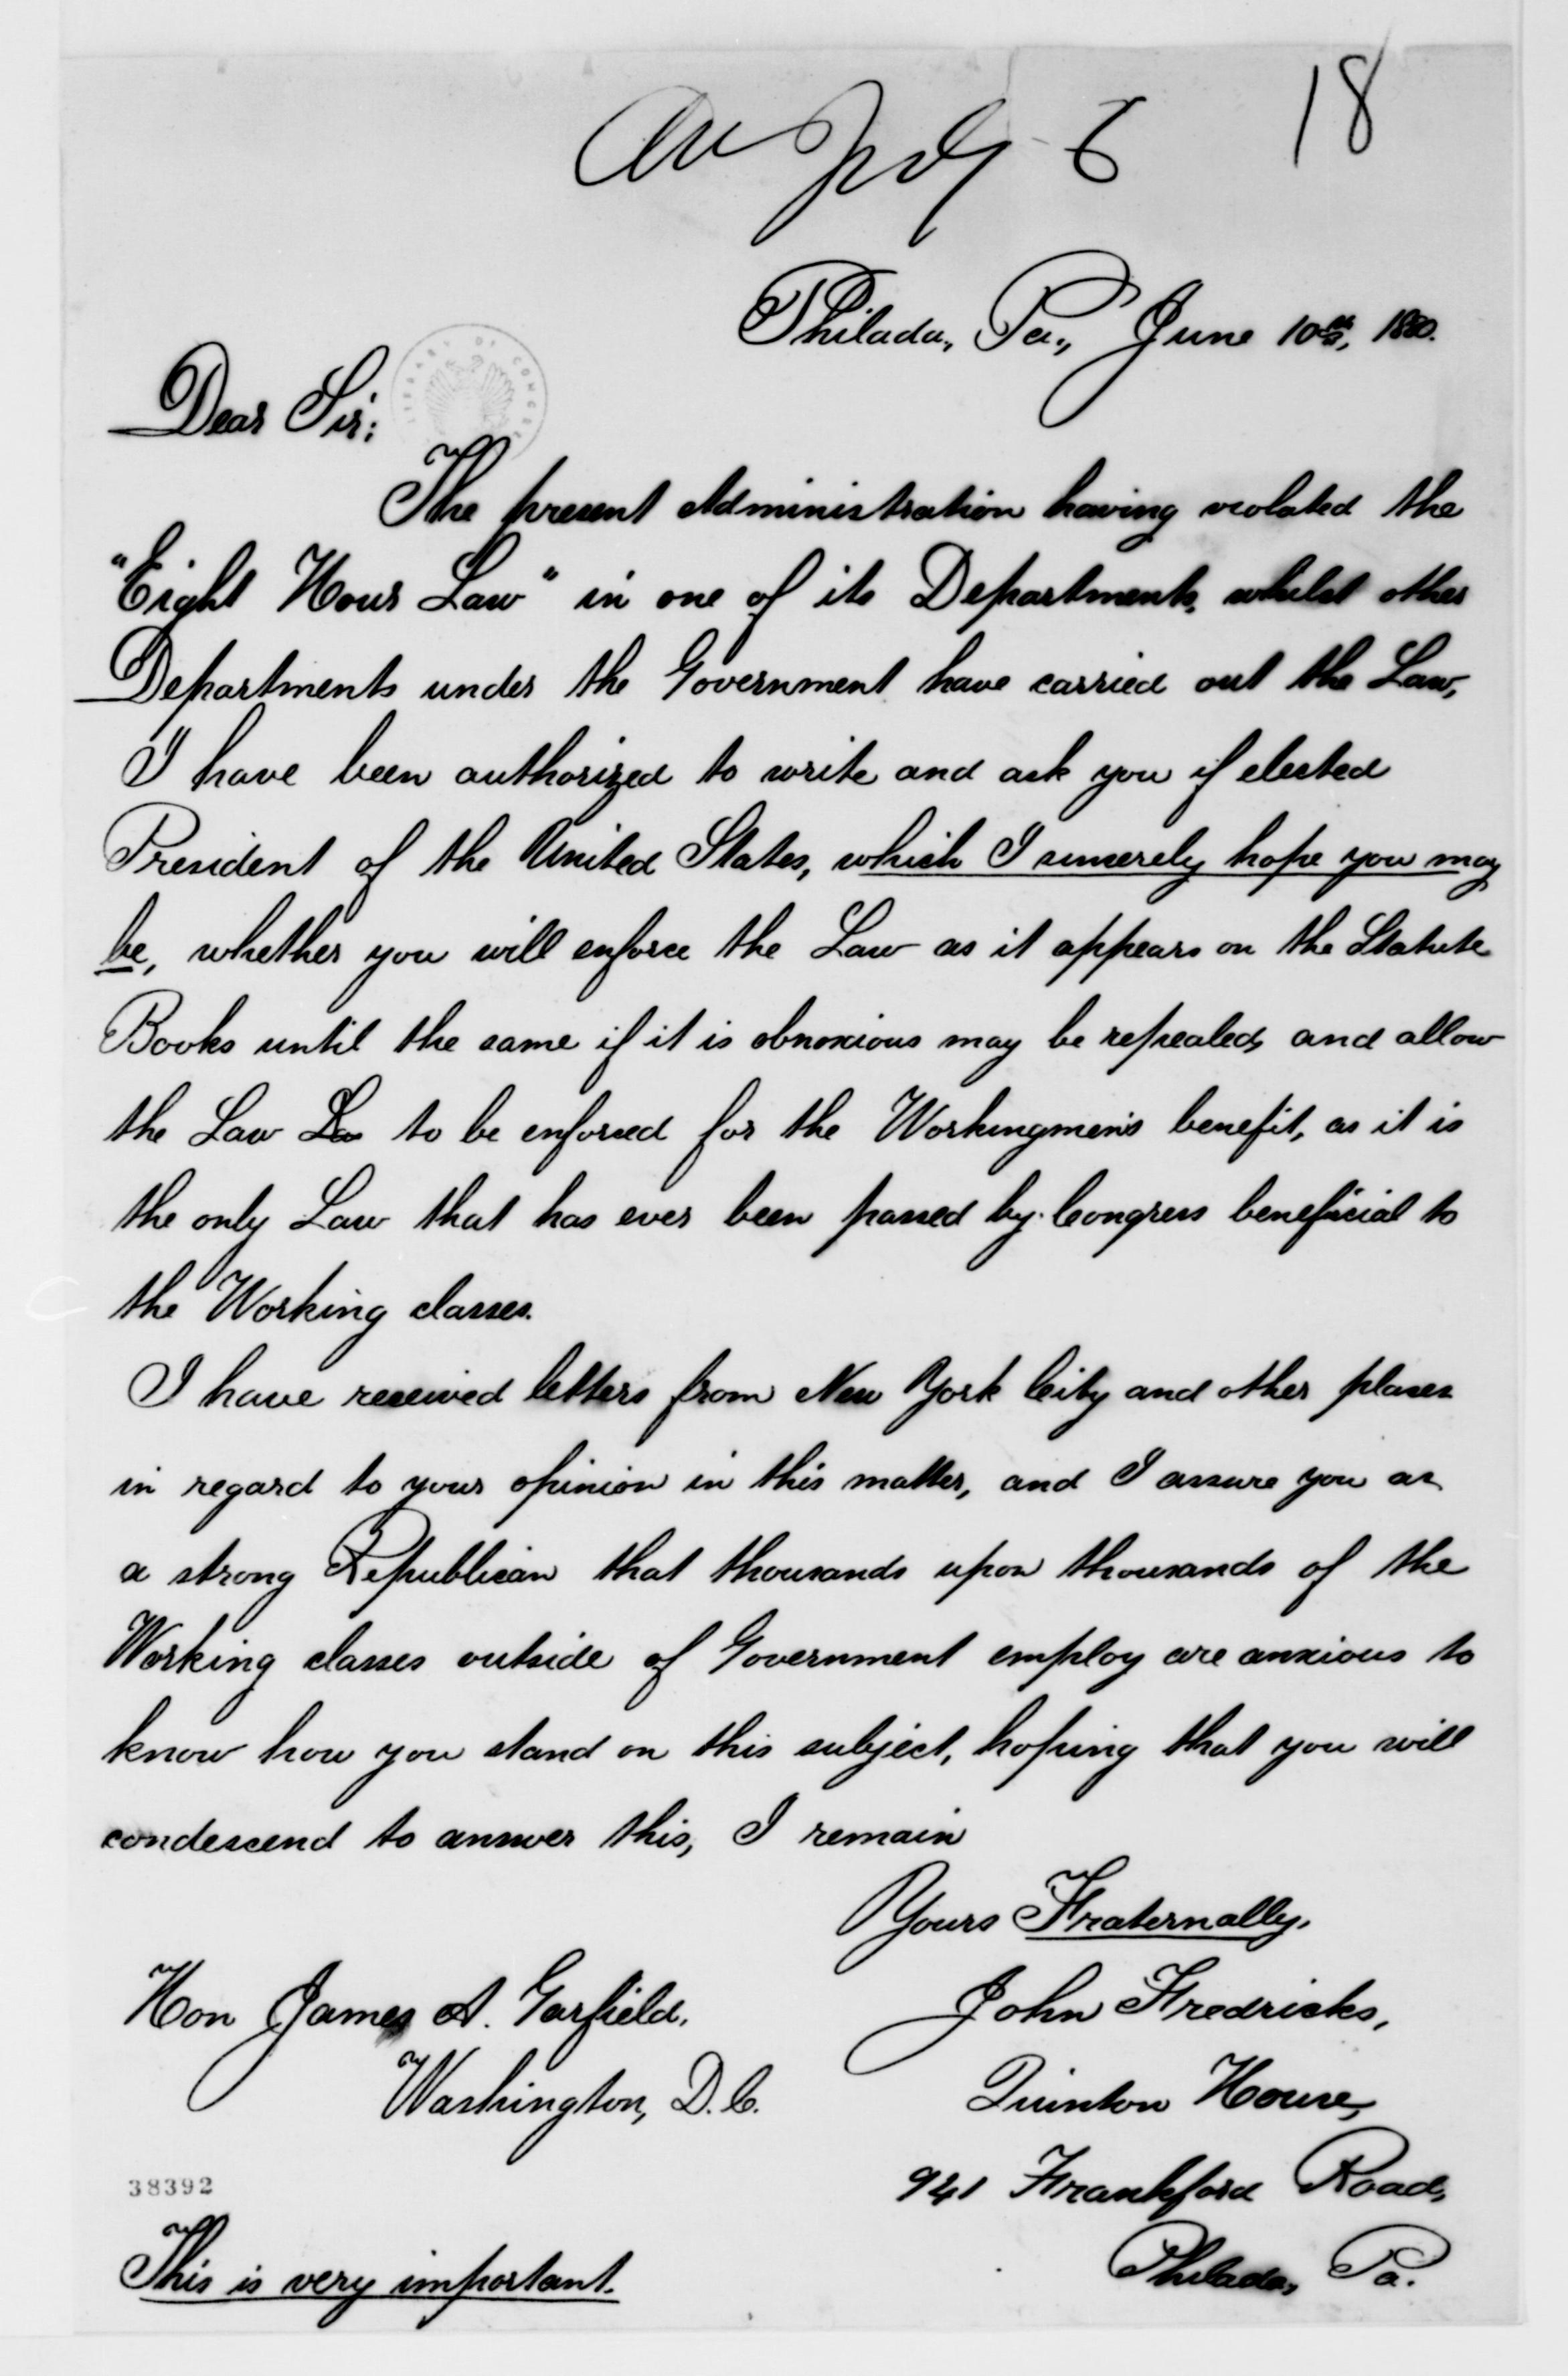 18
Philada., Pa., June 10th, 1880.
LIBRARY OF CONGRESS
Dear Sir:
The present Administration having violated the
"Eight Hour Law" in one of its Departments, whilst other
Departments under the Government have carried out the Law,
I have been authorized to write and ask you if elected
President of the United States, which I sincerely hope you may
be, whether you will enforce the Law as it appears on the Statute
Books until the same if it is obnoxious may be repealed, and allow
the Law La to be enforced for the Workingmen's benefit, as it is
the only Law that has ever been passed by Congress beneficial to
the Working classes.
I have received letters from New York City and other places
in regard to your opinion in this matter, and I assure you as
a strong Republican that thousands upon thousands of the
Working classes outside of Government employ are anxious to
know how you stand on this subject, hoping that you will
condescend to answer this, I remain
Yours Fraternally,
John Fredricks,
Quinton House,
941 Frankford Road,
Philada, Pa.
Hon James A. Garfield.
Washington, D.C.
38392
This is very important.